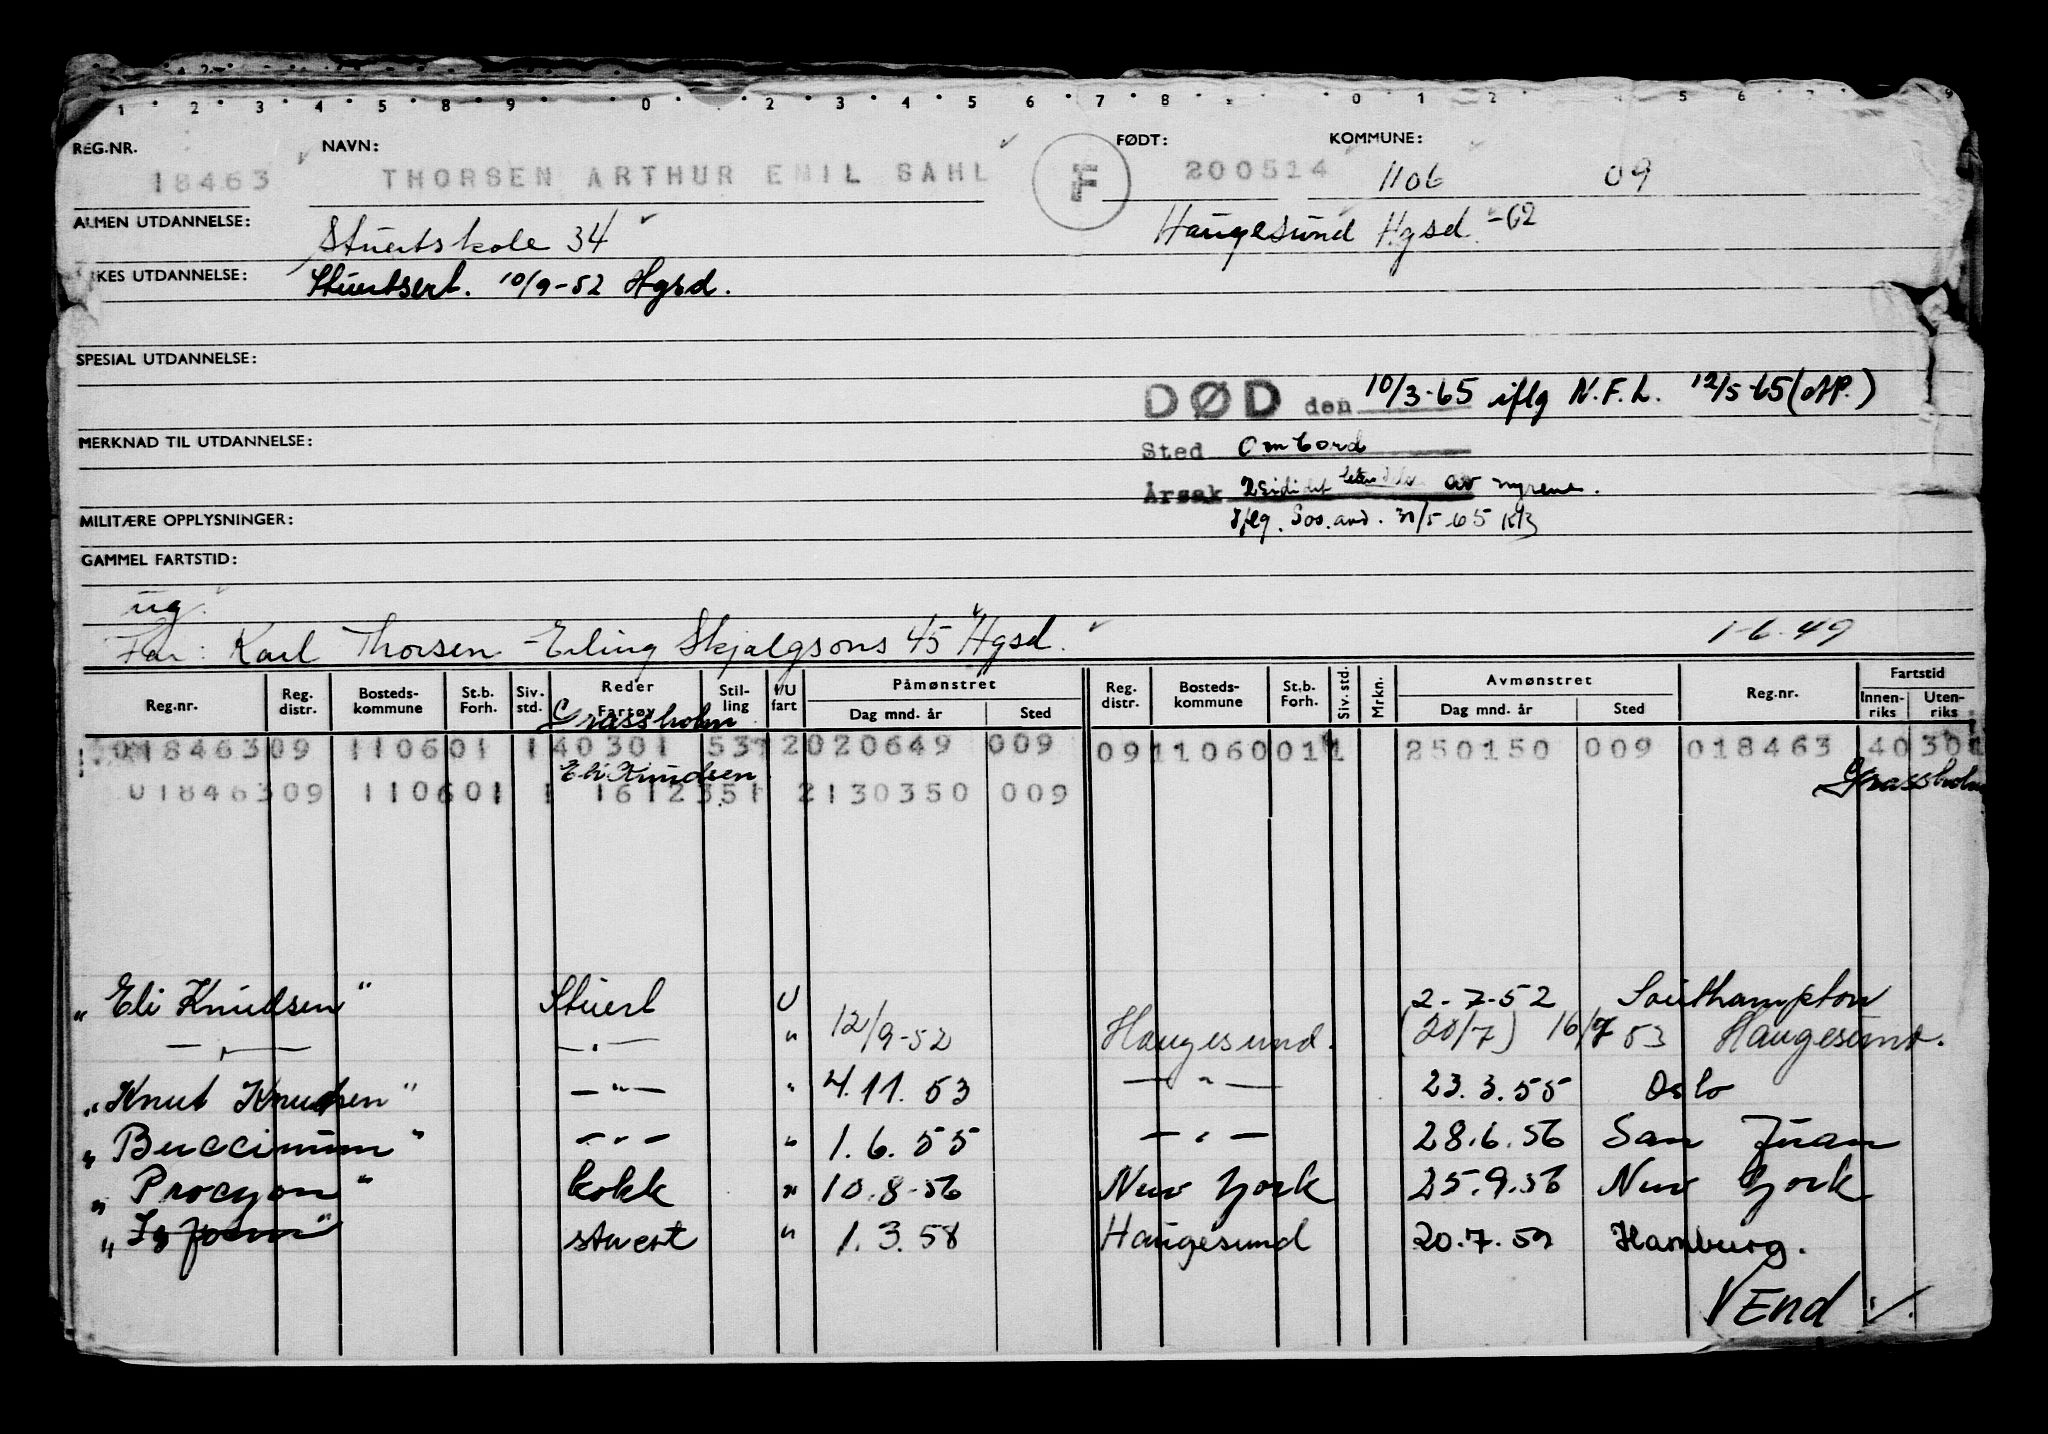 REG.NR. NAVN: FØDT: KOMMUNE:
18463 THORSEN ARTHUR EMIL SAHL F 200514 1106 09
ALMEN UTDANNELSE: Stuertskole 34 Haugesund Hgsd. -62
KES UTDANNELSE: Stuertsert. 10/9-52 Hgsd.
SPESIAL UTDANNELSE:
DØD den 10/3-65 iflg N.F.L. 12/5-65
MERKNAD TIL UTDANNELSE:
Sted Ombord
Årsak av nyrene.
MILITÆRE OPPLYSNINGER:
Iflg. Sos.avd. 31/5-65
GAMMEL FARTSTID:
ug.
Far: Karl Thorsen - Erling Skjalgsons 45 Hgsd. 1-6-49
Reg.nr. Reg. distr. Bosteds- kommune St.b. Forh. Siv. std. Reder Fartøy Stil- ling I/U fart Påmønstret Dag mnd. år Sted Reg. distr. Bosteds- kommune St.b. Forh. Siv. std. Mrkn. Avmønstret Dag mnd. år Sted Reg.nr. Fartstid Innen- riks Uten- riks
Grassholm
018463 09 1106 01 1 40301 537 2 020649 009 09 1106 001 1 250150 009 018463 40301
Eli Knudsen Grassholm
018463 09 1106 01 1 1612351 2 130350 009
"Eli Knudsen" Stuert U 2-7-52 Southampton
— " — — " — " 12/9-52 Haugesund. (20/7) 16/7 53 Haugesund.
"Knut Knudsen" — " — " 4.11.53 — " — 23.3.55 Oslo
"Buccinum" — " — " 1.6.55 — " — 28.6.56 San Juan
"Procyon" kokk " 10.8-56 New York 25.9.56 New York
stuert " 1.3.58 Haugesund 20.7.59 Hamburg.
VEnd ./.